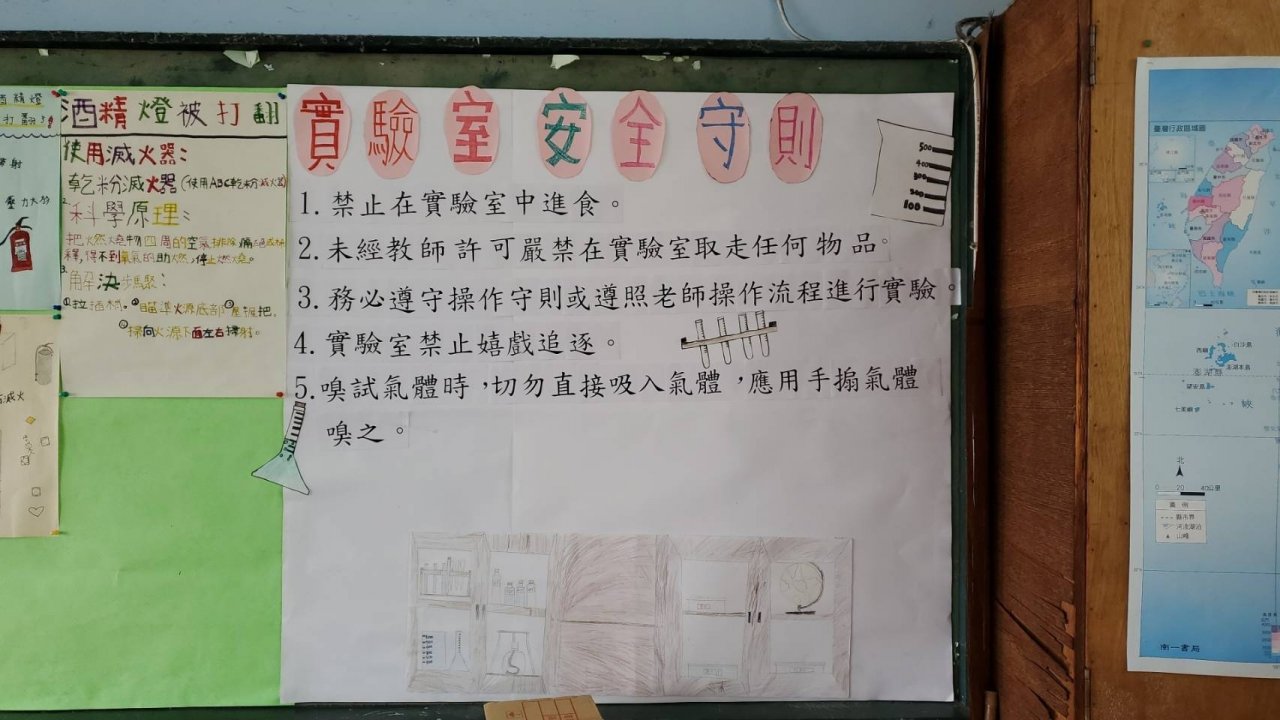 酒精燈被打翻
使用滅火器:
乾粉滅火器(使用ABC乾粉滅火器
2.
科學原理:
把火燃燒物四周的空氣排除
釋,得不到氧氣的助燃,停止燃燒。
3.
解決步驟:
①拉插梢。②瞄準火源底部③壓板把。
④向火源下面左右掃射。
實驗室安全守則
1.禁止在實驗室中進食。
2.未經教師許可嚴禁在實驗室取走任何物品。
3.務必遵守操作守則或遵照老師操作流程進行實驗。
4.實驗室禁止嬉戲追逐。
5.嗅試氣體時,切勿直接吸入氣體,應用手搧氣體
嗅之。
500
400
300
200
100
臺灣行政區域圖
白沙島
西嶼
澎湖本島
澎湖縣
望安島
七美嶼
峽
北
0 20 40公里
圖例
縣市界
河流湖泊
山峰
南一書局